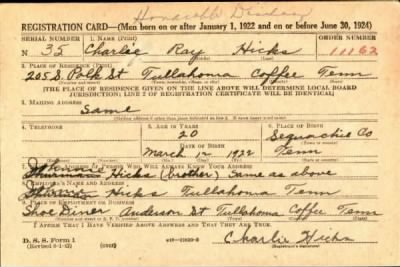 Honorable Discharge
REGISTRATION CARD—(Men born on or after January 1, 1922 and on or before June 30, 1924)
SERIAL NUMBER
1. NAME (Print)
ORDER NUMBER
N 35 Charlie Ray Hicks 11162
2. PLACE OF RESIDENCE (Print)
205 S. Polk St Tullahoma Coffee Tenn
[THE PLACE OF RESIDENCE GIVEN ON THE LINE ABOVE WILL DETERMINE LOCAL BOARD
JURISDICTION; LINE 2 OF REGISTRATION CERTIFICATE WILL BE IDENTICAL]
3. MAILING ADDRESS
Same
4. TELEPHONE
5. AGE IN YEARS
6. PLACE OF BIRTH
20
Sequachie Co
DATE OF BIRTH
March 12 1922 Tenn
WHO WILL ALWAYS KNOW YOUR ADDRESS
Hicks (brother) Same as above
8. EMPLOYER'S NAME AND ADDRESS
Hicks Tullahoma Tenn
9. PLACE OF EMPLOYMENT OR BUSINESS
Shoe Anderson St Tullahoma Coffee Tenn
I AFFIRM THAT I HAVE VERIFIED ABOVE ANSWERS AND THAT THEY ARE TRUE.
D. S. S. Form 1
(Revised 6-1-42) (over)
Charlie Hicks